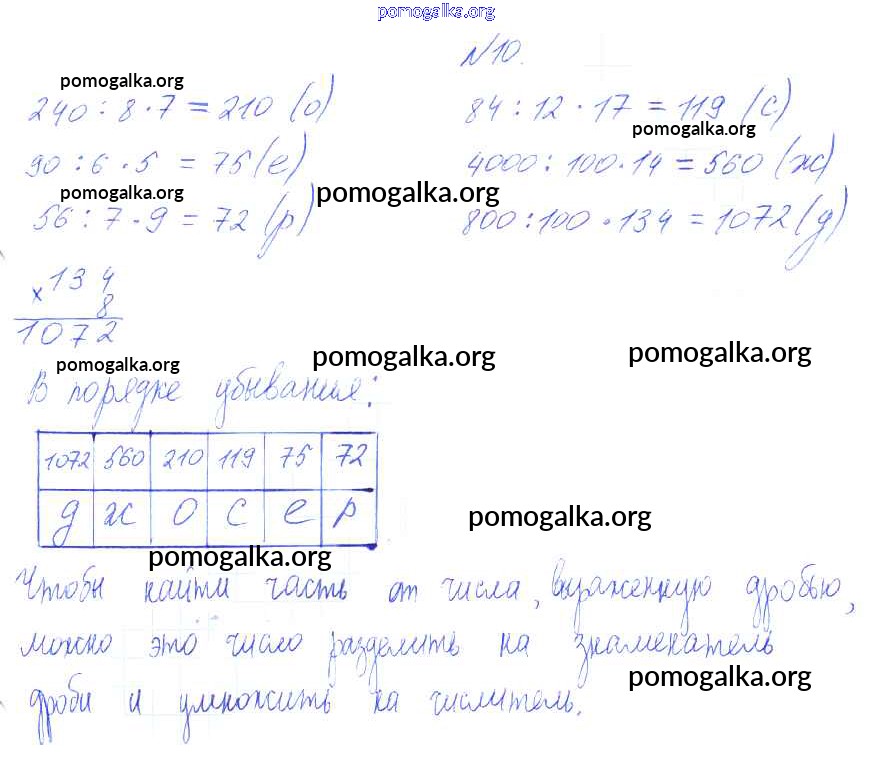 pomogalka.org
№10.
pomogalka.org
240 : 8 · 7 = 210 (о)
84 : 12 · 17 = 119 (с)
pomogalka.org
90 : 6 · 5 = 75 (е)
4000 : 100 · 14 = 560 (ж)
pomogalka.org
pomogalka.org
56 : 7 · 9 = 72 (р)
800 : 100 · 134 = 1072 (д)
× 134
8
1072
pomogalka.org
pomogalka.org
pomogalka.org
В порядке убывания:
1072 560 210 119 75 72
д ж о с е р
pomogalka.org
pomogalka.org
Чтобы найти часть от числа, выраженную дробью,
можно это число разделить на знаменатель
pomogalka.org
дроби и умножить на числитель.